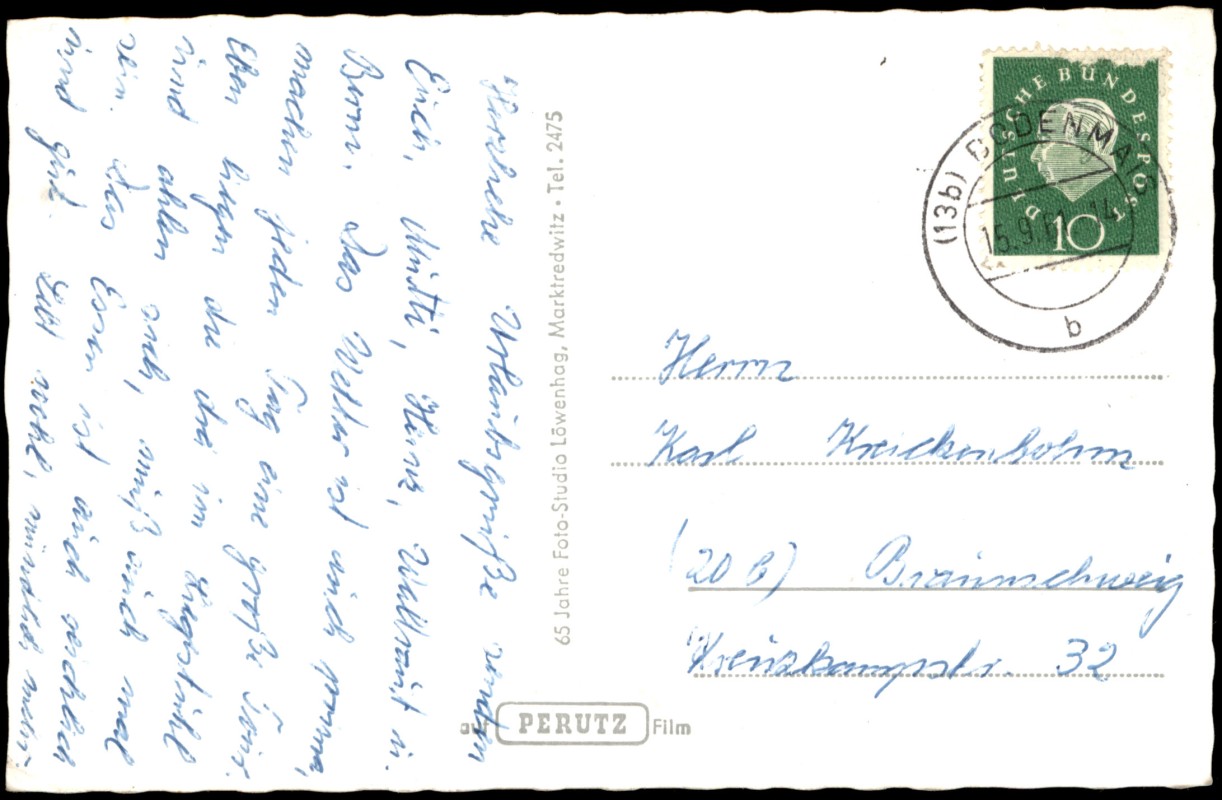 Herzliche Urlaubsgrüße senden
Erich, Mutti, Heinz, Waltraut u.
Bernd. Das Wetter ist auch prima,
machen jeden Tag eine große Tour.
Eben liegen die drei im Liegestuhl
und aalen sich, muß auch mal
sein. Das Essen ist auch reichlich
und gut. Lebt wohl,
65 Jahre Foto-Studio Löwenhag, Marktredwitz · Tel. 2475
auf PERUTZ Film
DEUTSCHE BUNDESPOST
10
(13b) BODENMAIS
15.9.61 14
b
Herrn
Karl Kreickenbohm
(20 b) Braunschweig
Kreuzkampstr. 32